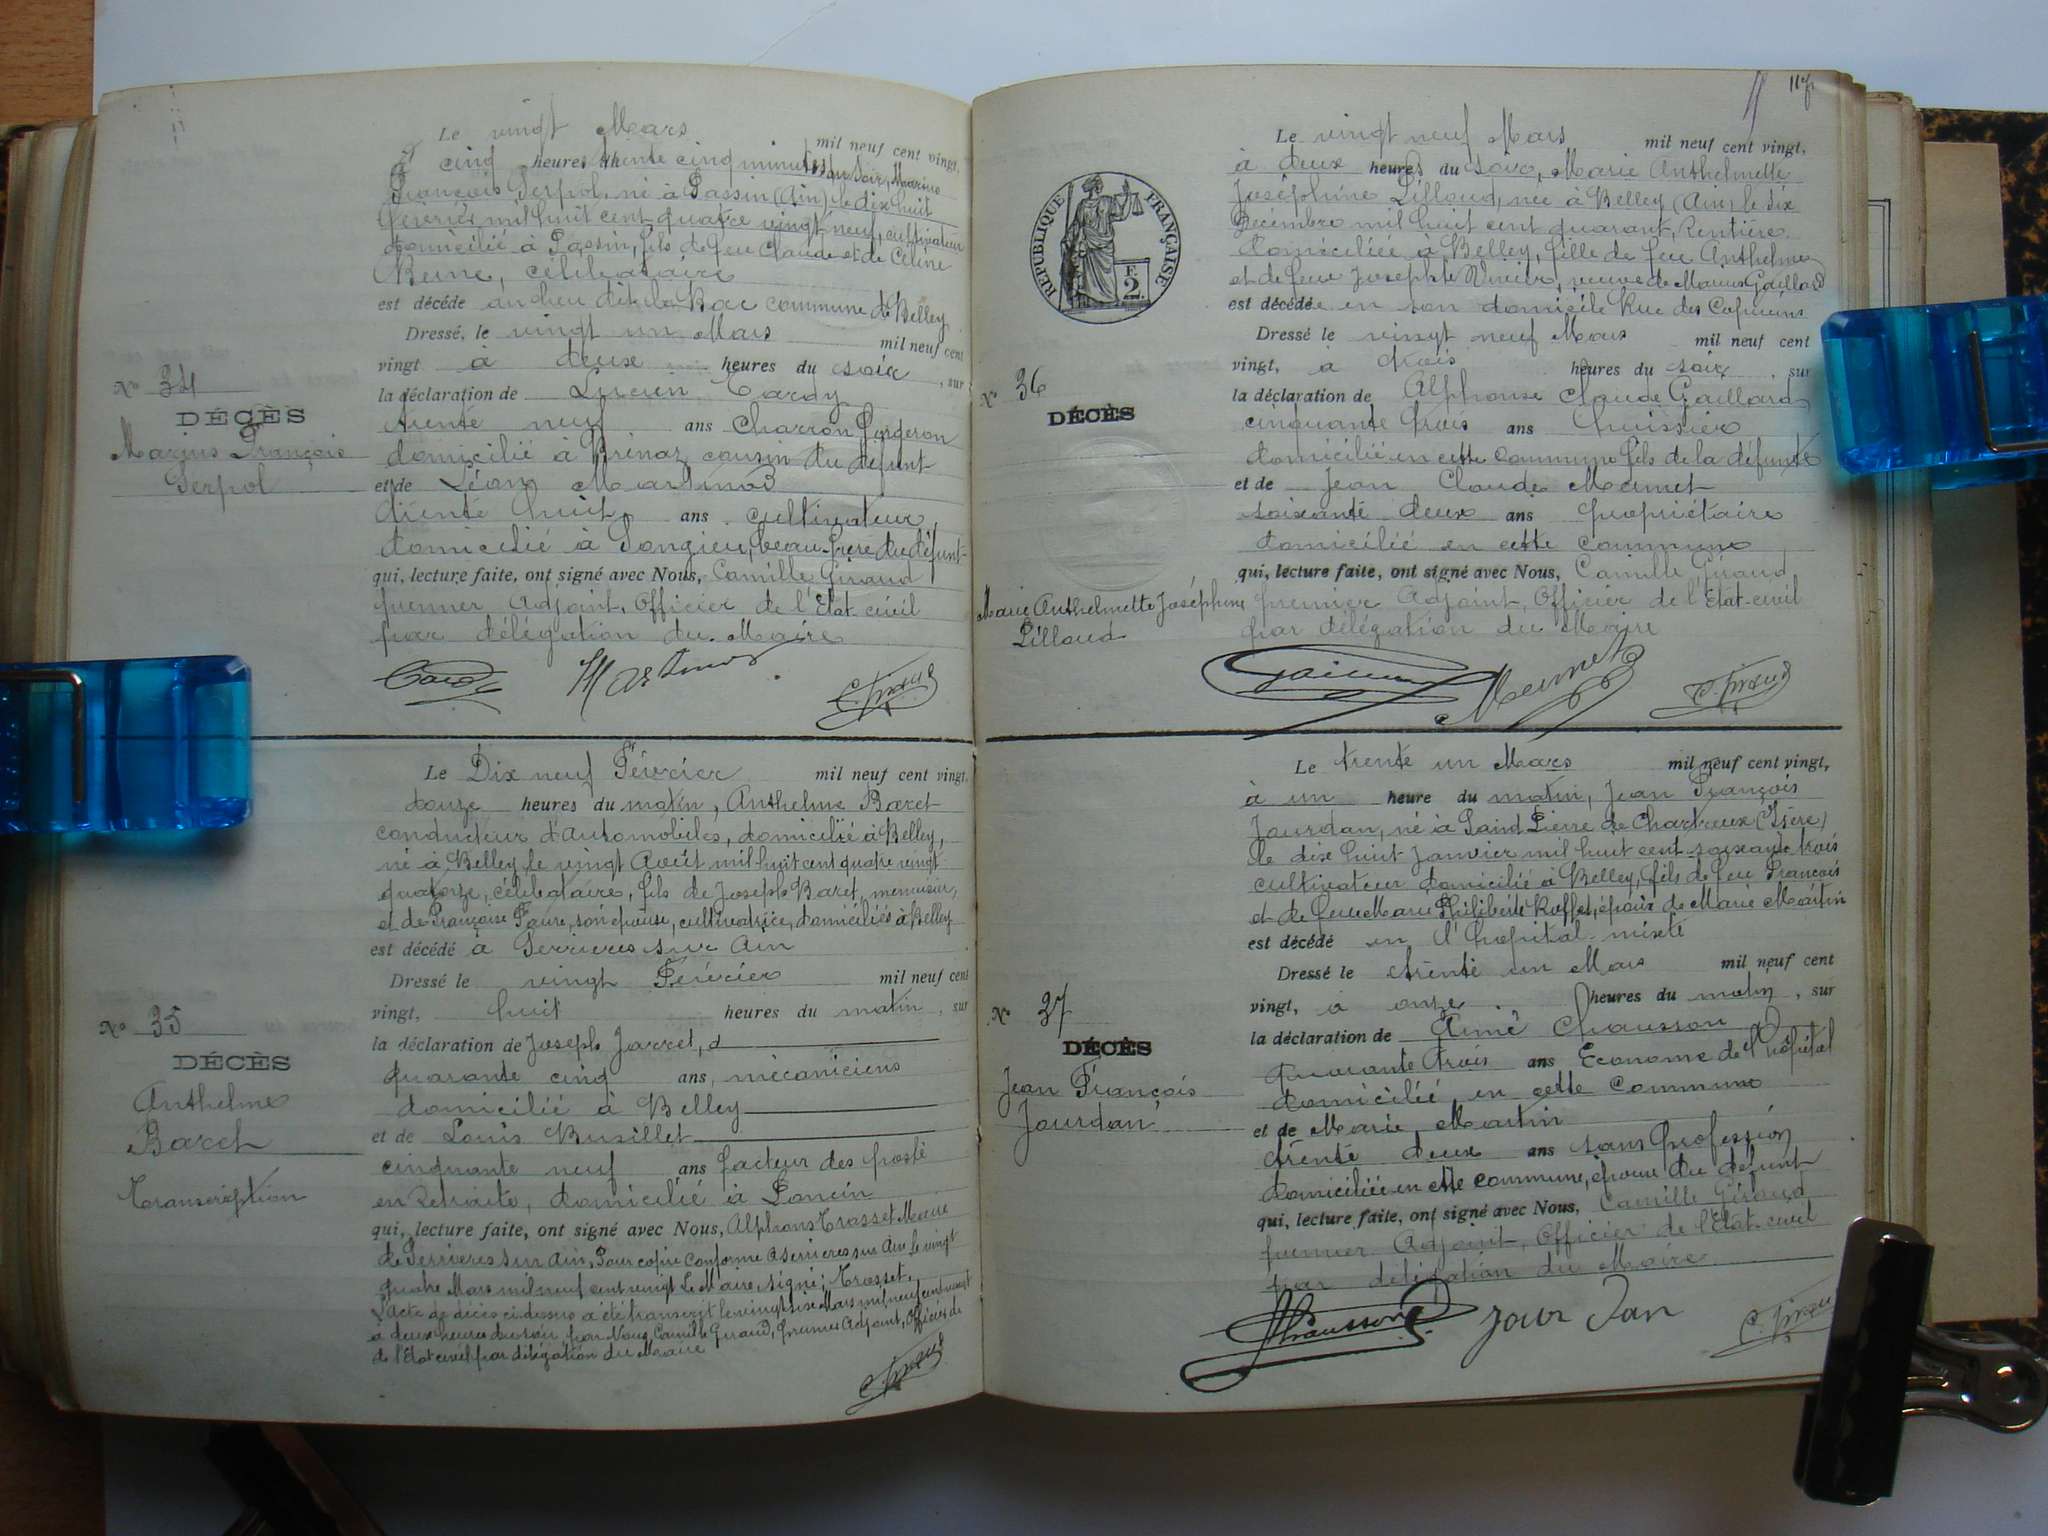 Le vingt Mars mil neuf cent vingt,
à cinq heures trente cinq minutes du soir, Marius
François Serpol, né à Passin (Ain) le dix huit
Février mil huit cent quatre vingt neuf, cultivateur
domicilié à Passin, fils de feu Claude et de Céline
célibataire
est décédé au lieu dit le Bac commune de Belley
Dressé, le vingt un Mars mil neuf cent
vingt à deux heures du soir, sur
la déclaration de Lucien Cardy
trente neuf ans Charron Forgeron
domicilié à Brénaz cousin du défunt
et de Léon Martinod
trente huit ans cultivateur,
domicilié à Songieu, beau-frère du défunt
qui, lecture faite, ont signé avec Nous, Camille Giraud
premier Adjoint, Officier de l'Etat-civil
par délégation du Maire
N° 34
DÉCÈS
Marius François
Serpol
Martinod
C. Giraud
Le Dix neuf Février mil neuf cent vingt,
douze heures du matin, Anthelme Baret
conducteur d'Automobiles, domicilié à Belley,
né à Belley le vingt Août mil huit cent quatre vingt
quatorze, célibataire, fils de Joseph Baret, menuisier,
et de Françoise Faure, son épouse, cultivatrice, domiciliés à Belley
est décédé à Serrières sur Ain
Dressé le vingt Février mil neuf cent
vingt, huit heures du matin, sur
la déclaration de Joseph Jarret, d
quarante cinq ans, mécaniciens
domicilié à Belley
et de Louis Busillet
cinquante neuf ans facteur des poste
en retraite, domicilié à Poncin
qui, lecture faite, ont signé avec Nous, Alphons Trosset Maire
de Serrières sur Ain, Pour copie conforme à Serrières sur Ain le vingt
quatre Mars mil neuf cent vingt Le Maire signé: Trosset.
L'acte de décès ci-dessus a été transcrit le vingt six Mars mil neuf cent vingt
à deux heures du soir, par Nous Camille Giraud, premier Adjoint, Officier de
de l'Etat civil par délégation du Maire
N° 35
DÉCÈS
Anthelme
Baret
Transcription
C. Giraud
117
Le vingt neuf Mars mil neuf cent vingt,
à deux heures du soir, Marie Anthelmette
Joséphine Lilloud, née à Belley (Ain) le six
Décembre mil huit cent quarant, Rentière
domiciliée à Belley, fille de feu Anthelme
et de feue Josephte, veuve de Marius Gaillard
est décédée en son domicile Rue des Capucins
Dressé le vingt neuf Mars mil neuf cent
vingt, à trois heures du soir, sur
la déclaration de Alphonse Claude Gaillard
cinquante trois ans huissier
domicilié en cette commune fils de la défunte
et de Jean Claude Meunet
soixante deux ans propriétaire
domicilié en cette commune
qui, lecture faite, ont signé avec Nous, Camille Giraud
premier Adjoint, Officier de l'Etat-civil
par délégation du Maire
RÉPUBLIQUE FRANÇAISE
F.
2
N° 36
DÉCÈS
Marie Anthelmette Joséphine
Lilloud
Gaillard
Meunet
C. Giraud
Le trente un Mars mil neuf cent vingt,
à un heure du matin, Jean François
Jourdan, né à Saint Pierre de Chartreux (Isère)
le dix huit Janvier mil huit cent soixante trois
cultivateur domicilié à Belley, fils de feu François
et de feue Marie Philiberte Ruffet, époux de Marie Martin
est décédé en l'hôpital-mixte
Dressé le trente un Mars mil neuf cent
vingt, à onze heures du matin, sur
la déclaration de Aimé Chausson
quarante trois ans Econome de l'hôpital
domicilié en cette commune
et de Marie Martin
trente deux ans sans profession
domiciliée en cette commune, épouse du défunt
qui, lecture faite, ont signé avec Nous, Camille Giraud
premier Adjoint, Officier de l'Etat-civil
par délégation du Maire
N° 37
DÉCÈS
Jean François
Jourdan
Chausson
jour dan
C. Giraud